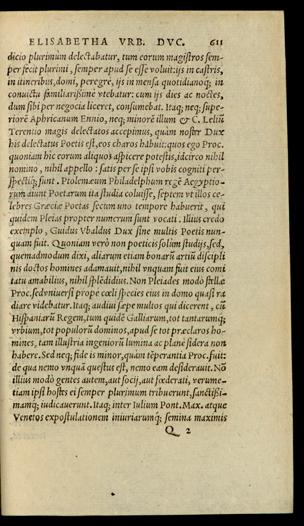 ELISABETHA VRB. DVC. 611
dicio plurimùm delectabatur, tum eorum magistros sem-
per fecit plurimi, semper apud se esse voluit: ijs in castris,
in itineribus, domi, peregrè, ijs in mensa quotidianoq; in
conuictu familiarißimè vtebatur: cum ijs dies ac noctes,
dum sibi per negocia liceret, consumebat. Itaq; neq; supe-
riorē Aphricanum Ennio, neq; minorē illum & C. Leliũ
Terentio magis delectatos accepimus, quàm noster Dux
his delectatus Poetis est, eos charos habuit: quos ego Proc.
quoniam hic eorum aliquos aspicere potestis, idcirco nihil
nomino, nihil appello: satis per se ipsi vobis cogniti per-
spectiq; sunt. Ptolemæum Philadelphum regē Aegyptio-
rum aiunt Poetarum ita studia coluisse, septem vt illos ce-
lebres Græciæ Poetas secum uno tempore habuerit, qui
quidem Pleias propter numerum sunt vocati. Illius credo
exemplo, Guidus Vbaldus Dux sine multis Poetis nun-
quam fuit. Quoniam verò non poeticis solùm studijs, sed,
quemadmodum dixi, aliarum etiam bonarũ artiũ discipli
nis doctos homines adamauit, nihil vnquam fuit eius comi
tatu amabilius, nihil splēdidius. Non Pleiades modò stellæ
Proc. sed vniuersi propè cœli species eius in domo quasi ra
diare videbatur. Itaq; audiui sæpe multos qui dicerent, cũ
Hispaniarũ Regem, tum quidē Galliarum, tot tantarumq;
vrbium, tot populorũ dominos, apud se tot præclaros ho-
mines, tam illustria ingeniorũ lumina ac planè sidera non
habere. Sed neq; fide is minor, quàm tēperantia Proc. fuit:
de qua nemo vnquā questus est, nemo eam desiderauit. Nō
illius modò gentes autem, aut socij, aut fœderati, verume-
tiam ipsi hostes ei semper plurimum tribuerunt, sanctißi-
mamq; iudicauerunt. Itaq; inter Iulium Pont. Max. atque
Venetos expostulationem iniuriarumq; semina maximis
Q 2